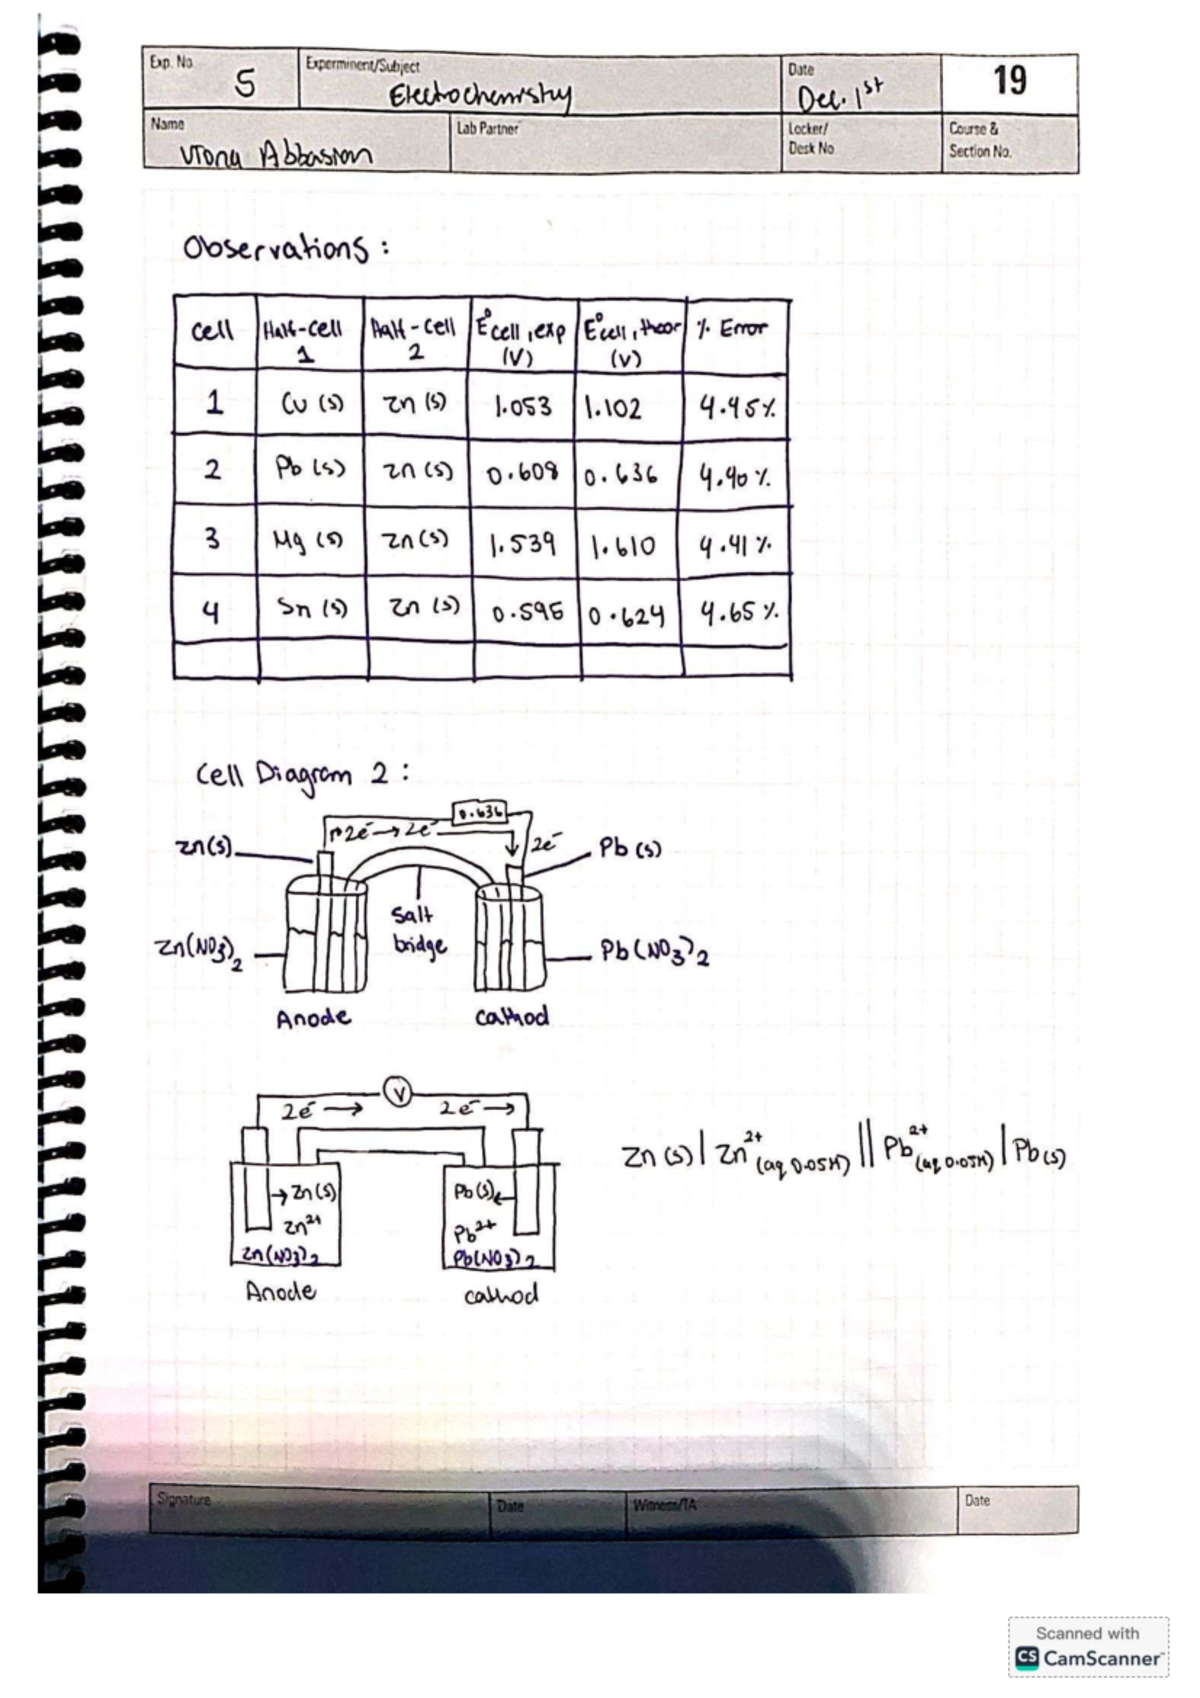 Exp. No. 5
Experminent/Subject Electrochemistry
Date Dec. 1st
19
Name
Abbasian
Lab Partner
Locker/
Desk No.
Course &
Section No.
Observations :
cell | Half-cell 1 | Half-cell 2 | E°cell, exp (V) | E°cell, theor (V) | % Error
1 | Cu (s) | Zn (s) | 1.053 | 1.102 | 4.45%
2 | Pb (s) | Zn (s) | 0.608 | 0.636 | 4.40 %
3 | Mg (s) | Zn (s) | 1.539 | 1.610 | 4.41 %
4 | Sn (s) | Zn (s) | 0.595 | 0.624 | 4.65 %
Cell Diagram 2 :
0.636
2e⁻ → 2e⁻
2e⁻
Zn(s)
Pb (s)
Salt
bridge
Zn(NO3)2
Pb(NO3)2
Anode
cathod
V
2e⁻ →
2e⁻ →
→ Zn(s)
Zn2+
Zn(NO3)2
Pb(s) ←
Pb2+
Pb(NO3)2
Zn (s) | Zn2+ (aq 0.05M) || Pb2+ (aq 0.05M) | Pb (s)
Anode
cathod
Signature
Date
Witness/TA
Date
Scanned with
CS CamScanner